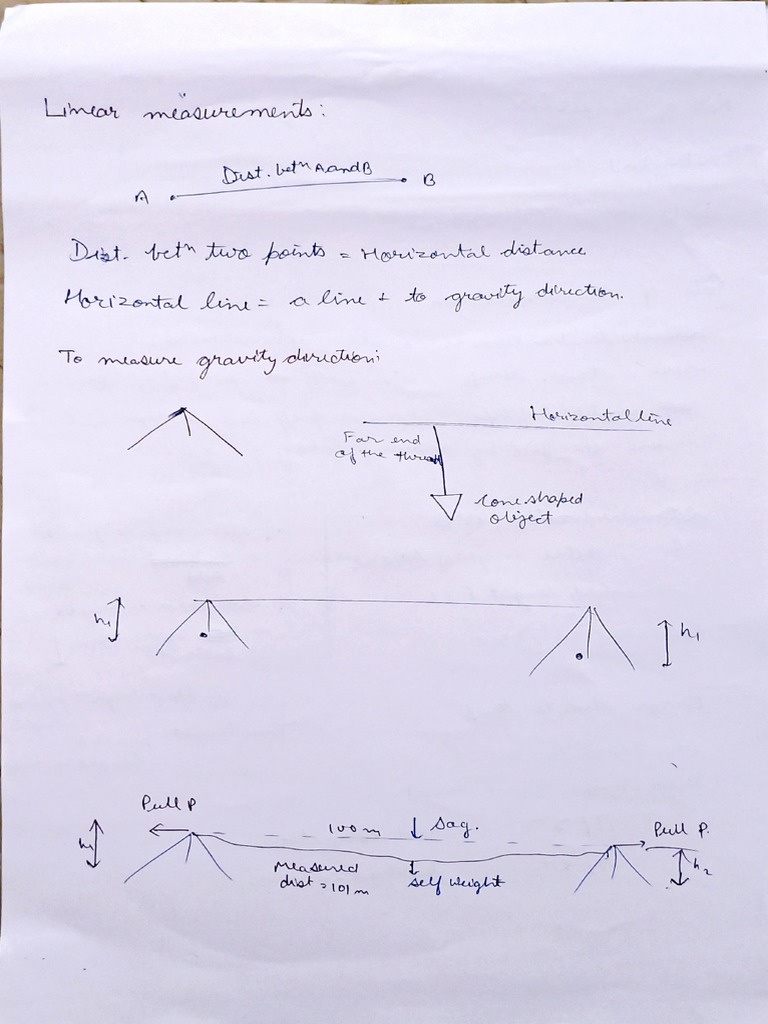 Linear measurements:
Dist. betⁿ A and B
A
B
Dist. betⁿ two points = Horizontal distance
Horizontal line = a line ⊥ to gravity direction.
To measure gravity direction:
Horizontal line
Far end
of the thread
Cone shaped
object
h₁
h₁
Pull P
100 m
Sag.
Pull P.
h₁
Measured
dist = 101 m
self weight
h₂